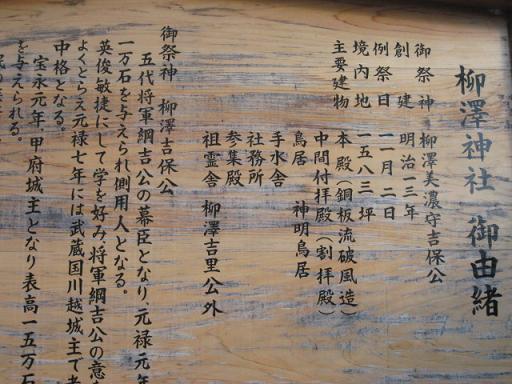 柳澤神社 御由緒
御祭神 柳澤美濃守吉保公
創建 明治一三年
例祭日 一一月二日
境内地 一五八三坪
主要建物 本殿（銅板流破風造）
中間付拝殿（割拝殿）
鳥居 神明鳥居
手水舎
社務所
参集殿
祖霊舎 柳澤吉里公外
御祭神 柳澤吉保公
五代将軍綱吉公の幕臣となり、元禄元年
一万石を与えられ側用人となる。
英俊敏捷にして学を好み、将軍綱吉公の意を
よくとらえ元禄七年には武蔵国川越城主で老
中格となる。
宝永元年、甲府城主となり表高一五万石
を与えられる。